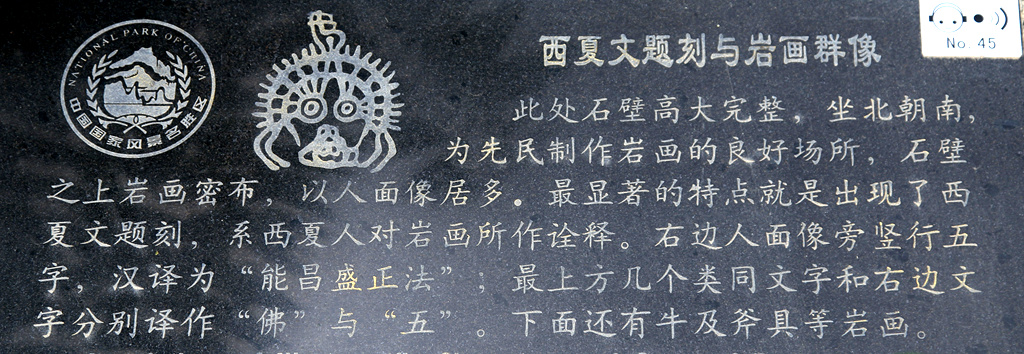 NATIONAL PARK OF CHINA
中国国家风景名胜区
No. 45
西夏文题刻与岩画群像
此处石壁高大完整，坐北朝南，
为先民制作岩画的良好场所，石壁
之上岩画密布，以人面像居多。最显著的特点就是出现了西
夏文题刻，系西夏人对岩画所作诠释。右边人面像旁竖行五
字，汉译为“能昌盛正法”；最上方几个类同文字和右边文
字分别译作“佛”与“五”。下面还有牛及斧具等岩画。